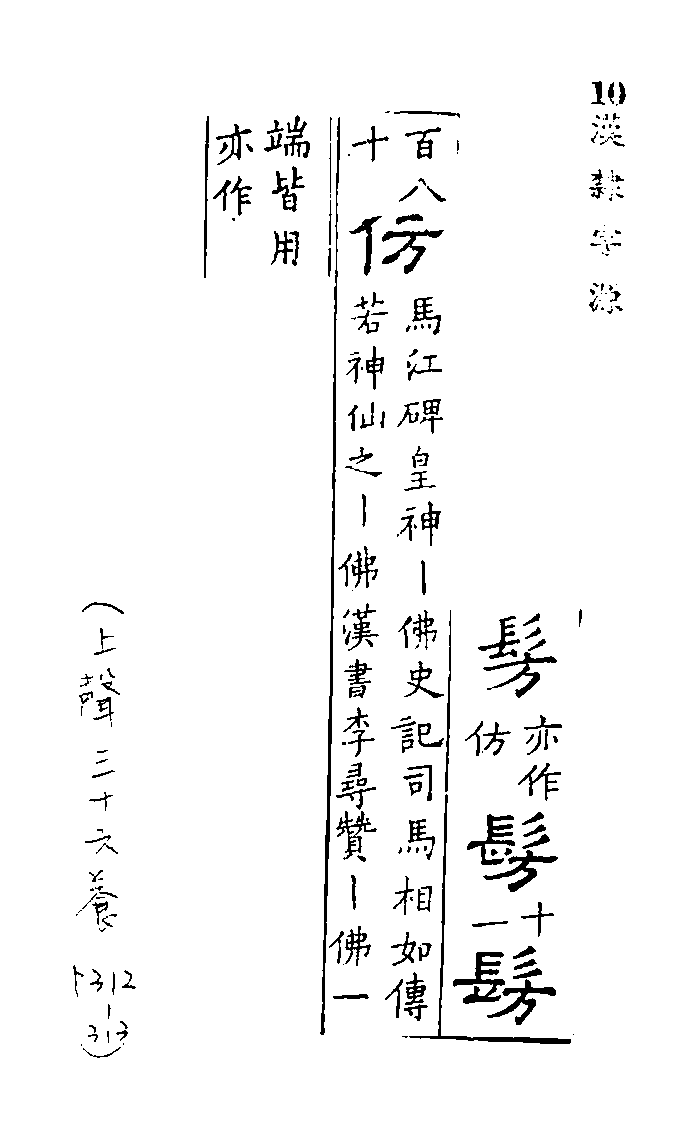 10
漢隸字源
髣
亦作
仿
髣
十
一
髣
百八
十
仿
馬江碑皇神丨佛史記司馬相如傳
若神仙之丨佛漢書李尋贊丨佛一
端皆用
亦作
(上聲三十六養
卜312
|
313)